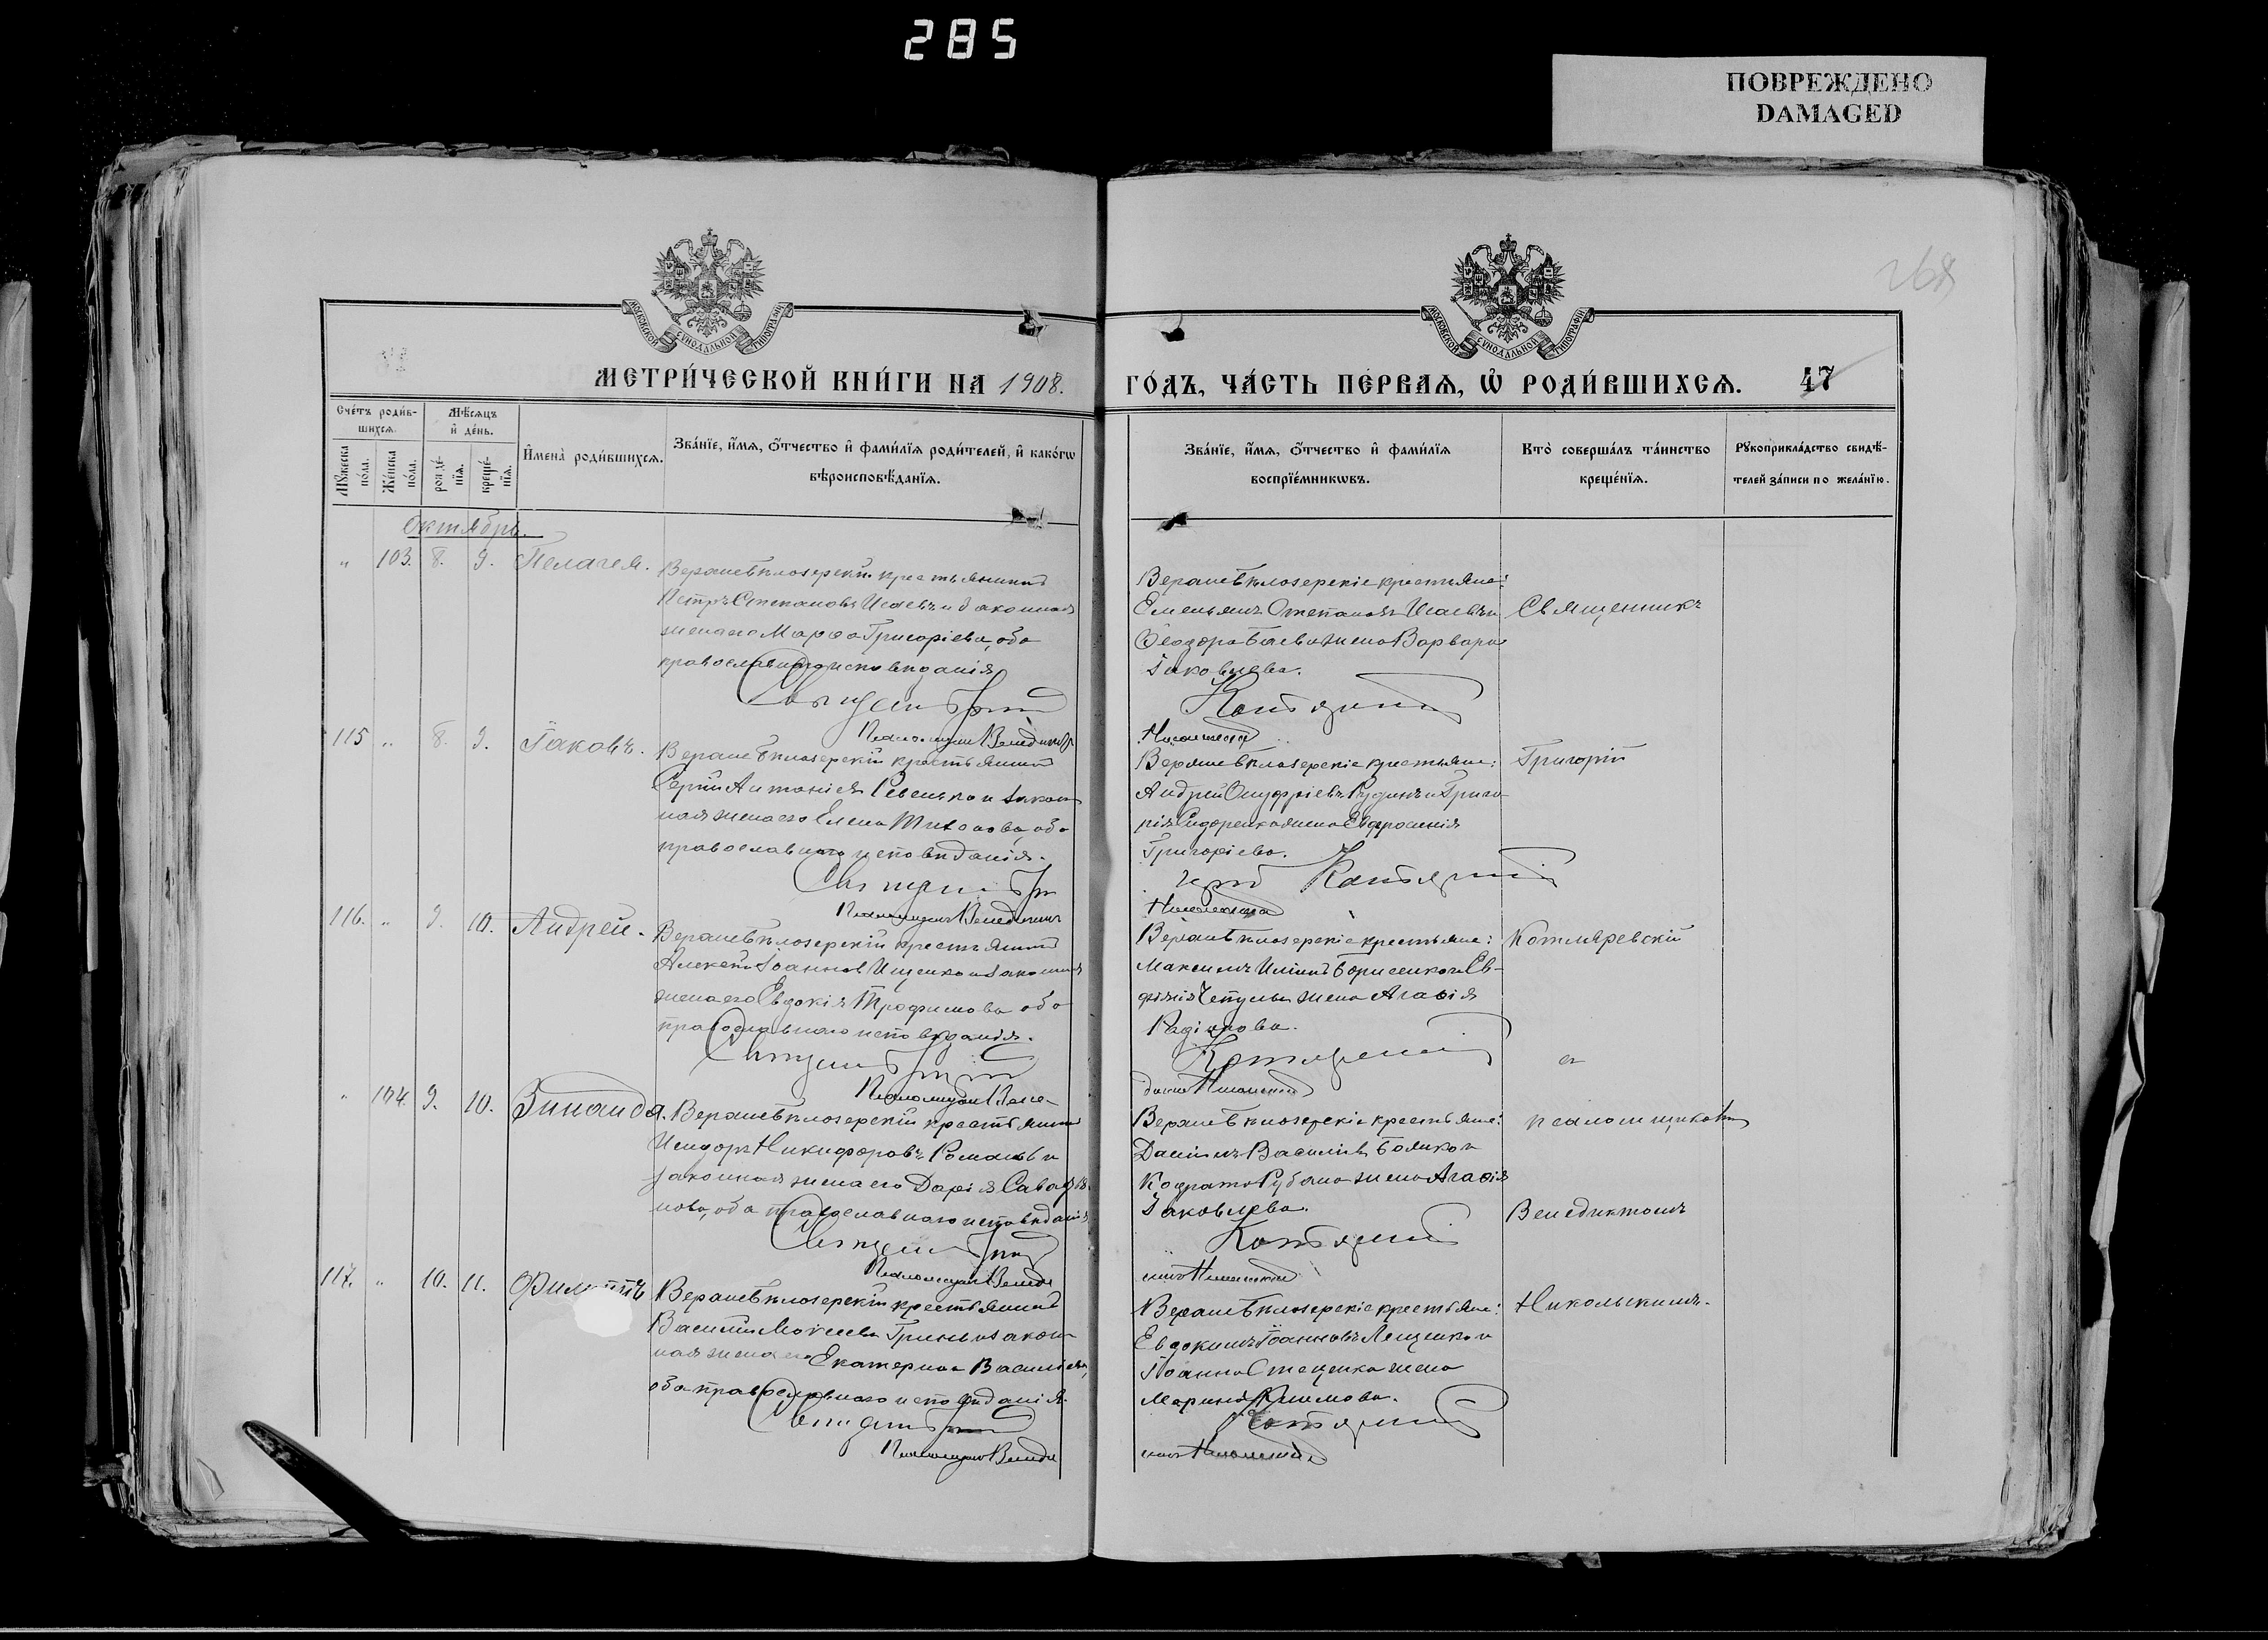 285
ПОВРЕЖДЕНО
DAMAGED
268
МОСКОВСКОЙ СѴНОДАЛЬНОЙ ТИПОГРАФІИ
МОСКОВСКОЙ СѴНОДАЛЬНОЙ ТИПОГРАФІИ
МЕТРИ́ЧЕСКОЙ КНИ́ГИ НА 1908.
ГО́ДЪ, ЧА́СТЬ ПЕ́РВАѦ, Ѽ РОДИ́ВШИХСѦ. 47
Сче́тъ роди́в-
шихсѧ.
Мѣ́сѧцъ
и҆ де́нь.
Мꙋ́жеска по́ла.
Же́нска по́ла.
рожде́-
нїѧ.
креще́-
нїѧ.
И҆мена̀ роди́вшихсѧ.
Зва́нїе, и҆́мѧ, о҆́тчество и҆ фами́лїѧ роди́телей, и҆ како́гѡ
вѣроисповѣ́данїѧ.
Зва́нїе, и҆́мѧ, о҆́тчество и҆ фами́лїѧ
воспрїе́мникѡвъ.
Кто̀ соверша́лъ та́инство
креще́нїѧ.
Рꙋкоприкла́дство свидѣ́-
телей за́писи по жела́нїю.
Октябрь.
" 103. 8. 9. Пелагея.
Верхнебѣлозерскій крестьянинъ
Петръ Степановъ Исаевъ и законная
жена его Марѳа Григоріева, оба
православнаго исповѣданія
Верхнебѣлозерскіе крестьяне:
Емельянъ Степановъ Исаевъ и
Ѳеодора жена Варвара
Іаковлева.
Священникъ
115 " 8. 9. Іаковъ.
Верхнебѣлозерскій крестьянинъ
Сергій Антоніевъ Севенько и закон
ная жена его Елена Титова, оба
православнаго исповѣданія.
Верхнебѣлозерскіе крестьяне:
Андрей Онуфріевъ Рудикъ и Григо
рія Сидоренка жена Евфросинія
Григоріева.
Григорій
116. " 9. 10. Андрей.
Верхнебѣлозерскій крестьянинъ
Алексѣй Іоанновъ Ищенко и законная
жена его Евдокія Трофимова оба
православнаго исповѣданія.
Верхнебѣлозерскіе крестьяне:
Максимъ Иліинъ Борисенко и Ев-
фимія жена Агаѳія
Радіонова.
Котляревскій
съ
" 104. 9. 10. Зинаида.
Верхнебѣлозерскій крестьянинъ
Исидоръ Никифоровъ Романовъ и
законная жена его Дарія Сава
нова, оба православнаго исповѣданія
Верхнебѣлозерскіе крестьяне:
Даніилъ Василіевъ Бояжко и
Кодрата Рубана жена Агаѳія
Іаковлева.
псаломщикомъ
Венедиктомъ
117. " 10. 11. Филиппъ
Верхнебѣлозерскій крестьянинъ
Василій Моисеевъ Гринь и закон
ная жена его Екатерина Василіева,
оба православнаго исповѣданія.
Верхнебѣлозерскіе крестьяне:
Евдокимъ Іоанновъ Лещенко и
Іоанна Стеценка жена
Марина Климова.
Никольскимъ.